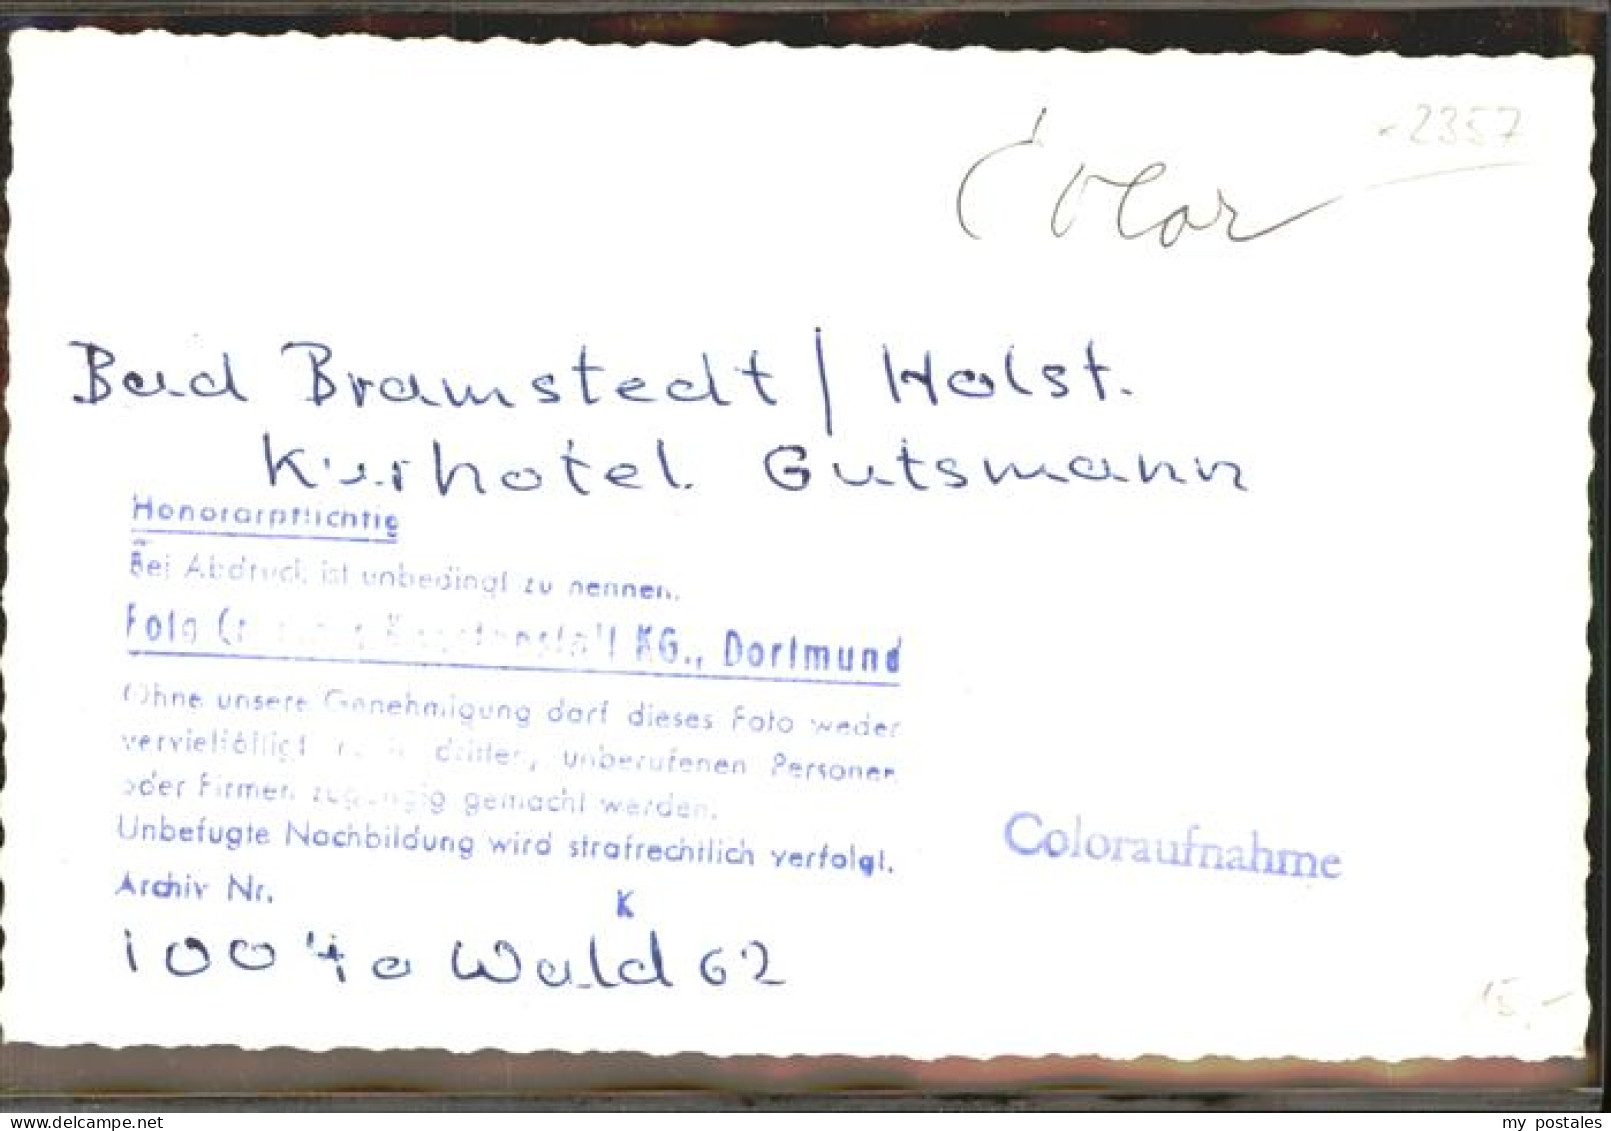 2357
Color
Bad Bramstedt / Holst.
Kurhotel Gutsmann
Honorarpflichtig
Bei Abdruck ist unbedingt zu nennen.
Foto KG., Dortmund
Ohne unsere Genehmigung darf dieses Foto weder
vervielfältigt dritten, unberufenen Personen
oder Firmen zugängig gemacht werden.
Unbefugte Nachbildung wird strafrechtlich verfolgt.
Coloraufnahme
Archiv Nr.
K
Wald 62
15,-
delcampe.net
my postales